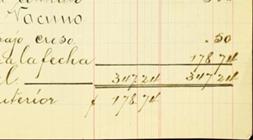 Vacuno
ajo creso .50
a la fecha 178.74
l 347.24 347.24
nterior 178.74